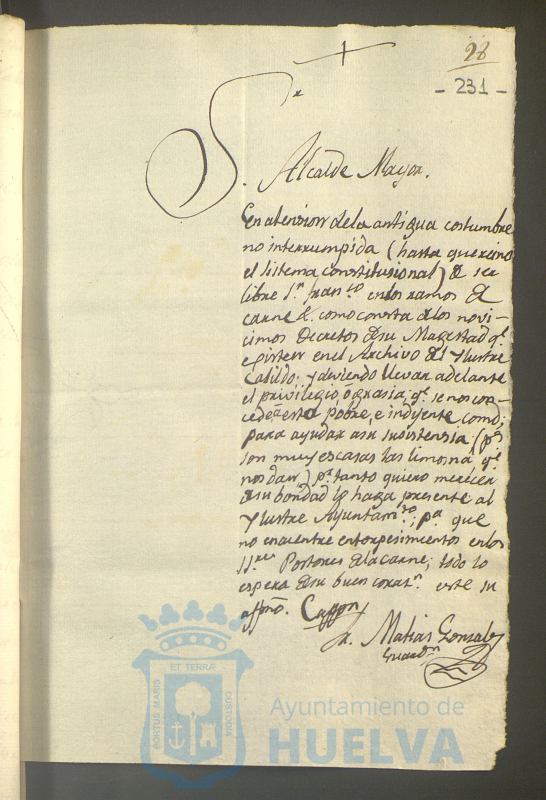 28
- 231 -
S.r
Alcalde Mayor.
En atension de la antigua costumbre
no interrumpida (hasta que vino
el sistema constitusional) de ser
libre S.n Fran.co en los ramos de
carne &. como consta de los novi-
cimos Decretos de su Magestad q.e
existen en el Archivo del Ylustre
Cabildo: y deviendo llevar adelante
el privilegio, o grasia, q.e se nos con-
cede a esta pobre, e indijente comd;
para ayudar a su susistensia (pues
son muy escasas las limosnas q.e
nos dan) p.r tanto quiero merecer
de su bondad lo haga presente al
Ylustre Ayuntam.to; p.a que
no encuentre entorpesimientos en los
SS.res Postores de la carne; todo lo
espera de su buen coras.n este su
affmo. Cappn
Fr. Matias Gonzalez
Guardn
ET TERRÆ
PORTUS MARIS
CUSTODIA
Ayuntamiento de
HUELVA